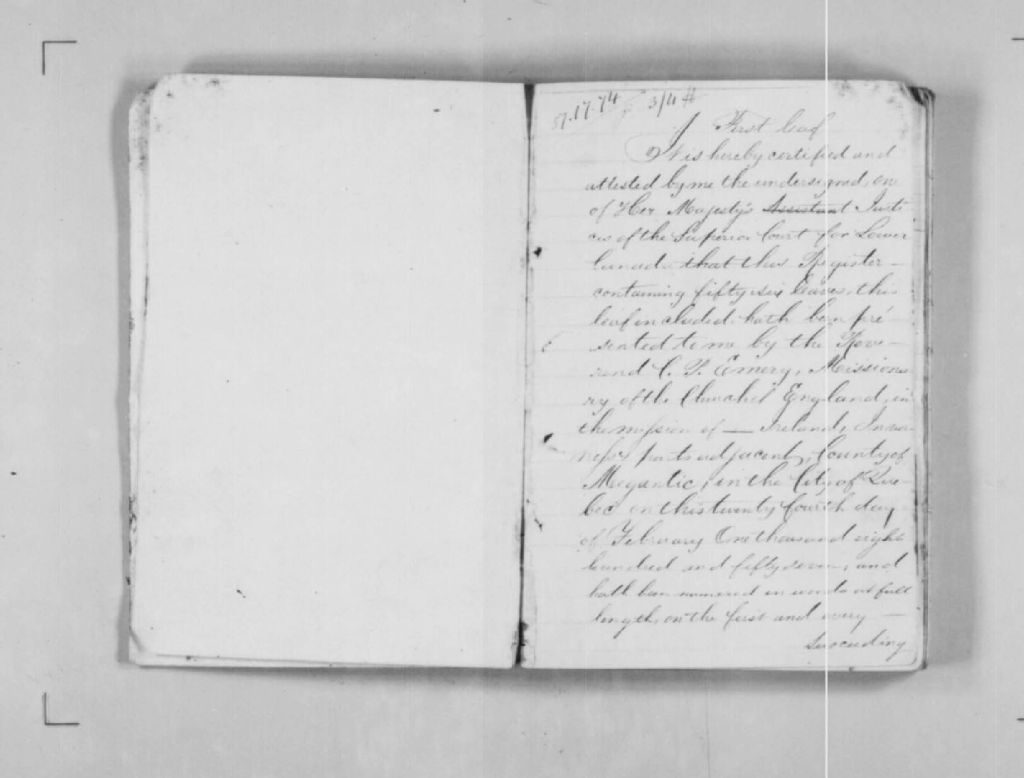 57.17.74 3/4 #
First leaf
It is hereby certified and
attested by me the undersigned, one
of Her Majesty's Assistant Justi
ces of the Superior Court for Lower
Canada that this Register —
containing fifty six leaves, this
leaf included, hath been pre
sented to me by the Reve —
rend C. P. Emery, Missiona
ry of the Church of England, in
the mission of — Ireland, Inver
ness, parts adjacent, County of
Megantic, in the City of Que
bec on this twenty fourth day
of February One thousand eight
hundred and fifty seven, and
hath been numbered in words at full
length, on the first and every —
succeeding